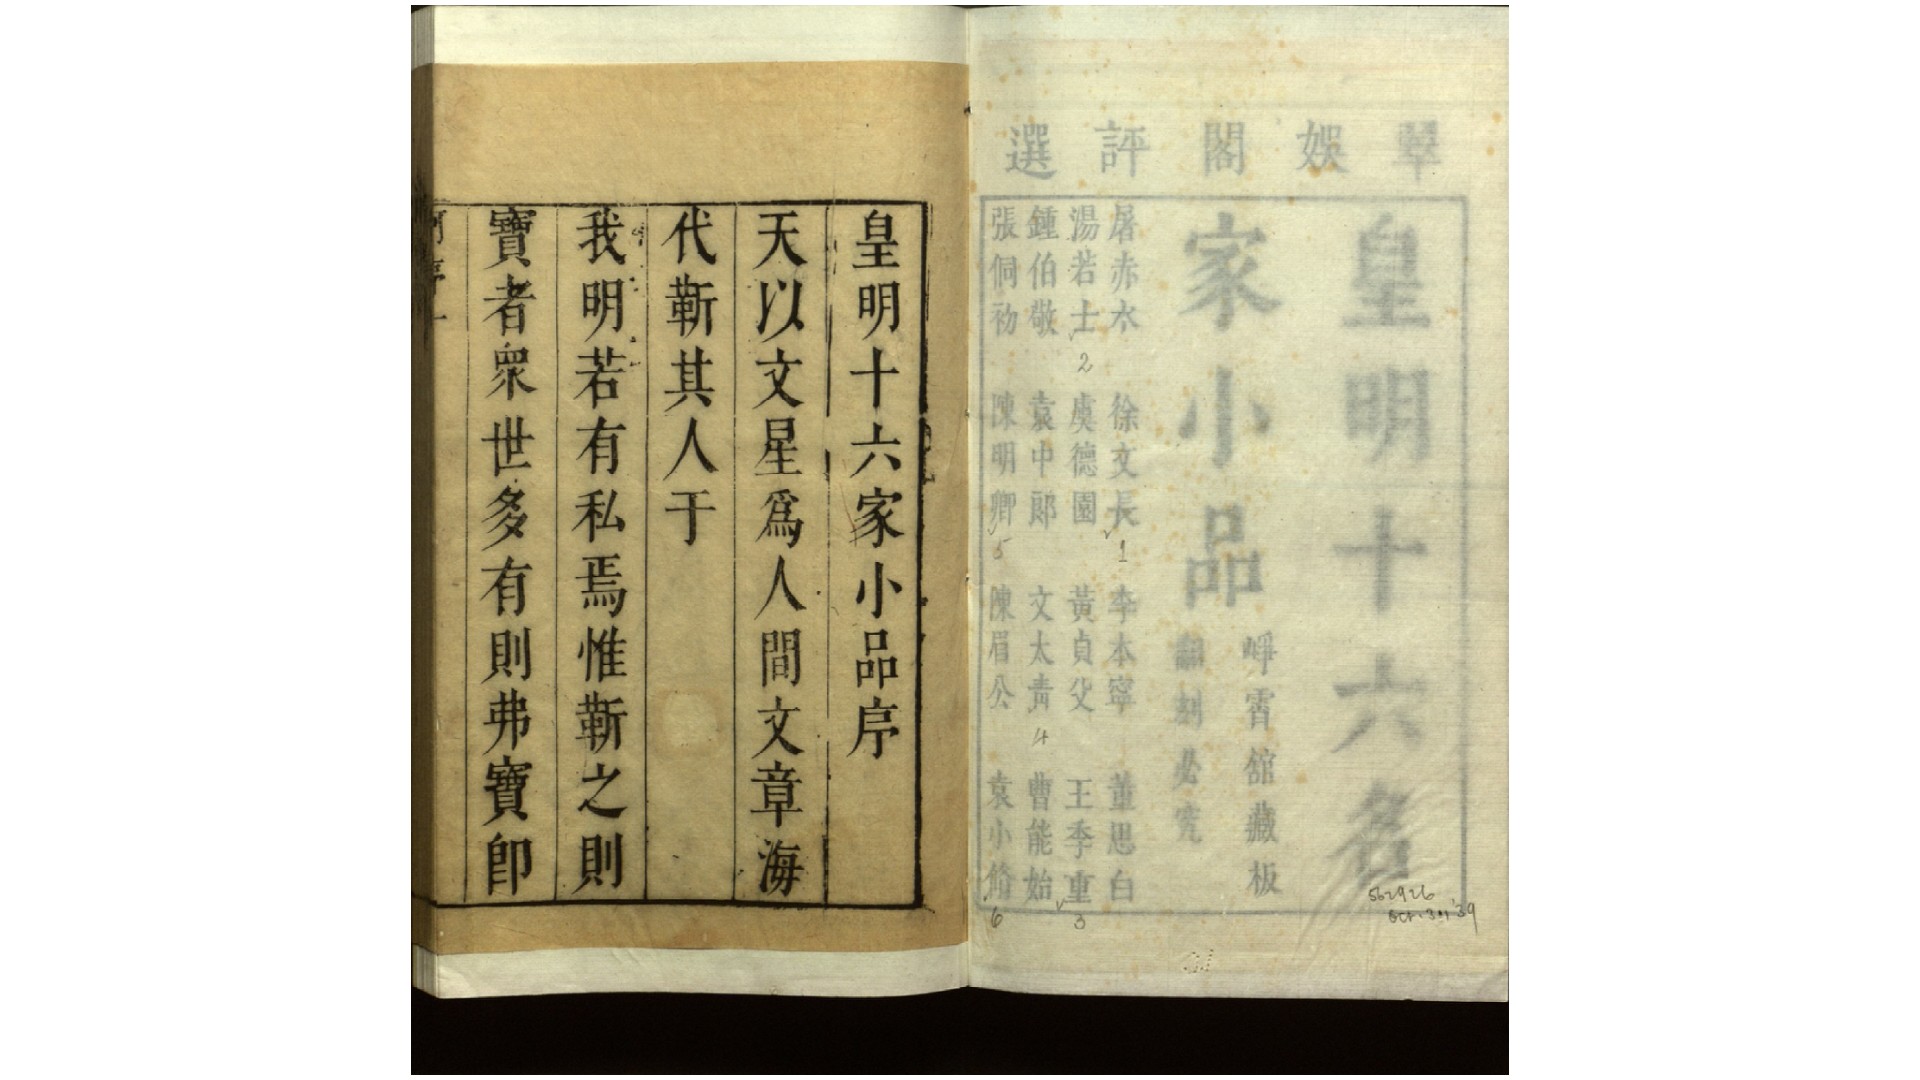 翠娛閣評選
皇明十六名
家小品
崢霄館藏板
翻刻必究
屠赤水 徐文長 李本寧 董思白
湯若士 虞德園 黃貞父 王季重
鍾伯敬 袁中郎 文太青 曹能始
張侗初 陳明卿 陳眉公 袁小脩
1
2
3
4
5
6
562926
Oct. 31 '39
皇明十六家小品序
天以文星爲人間文章海
代蘄其人于
我明若有私焉惟蘄之則
寶者衆世多有則弗寶卽